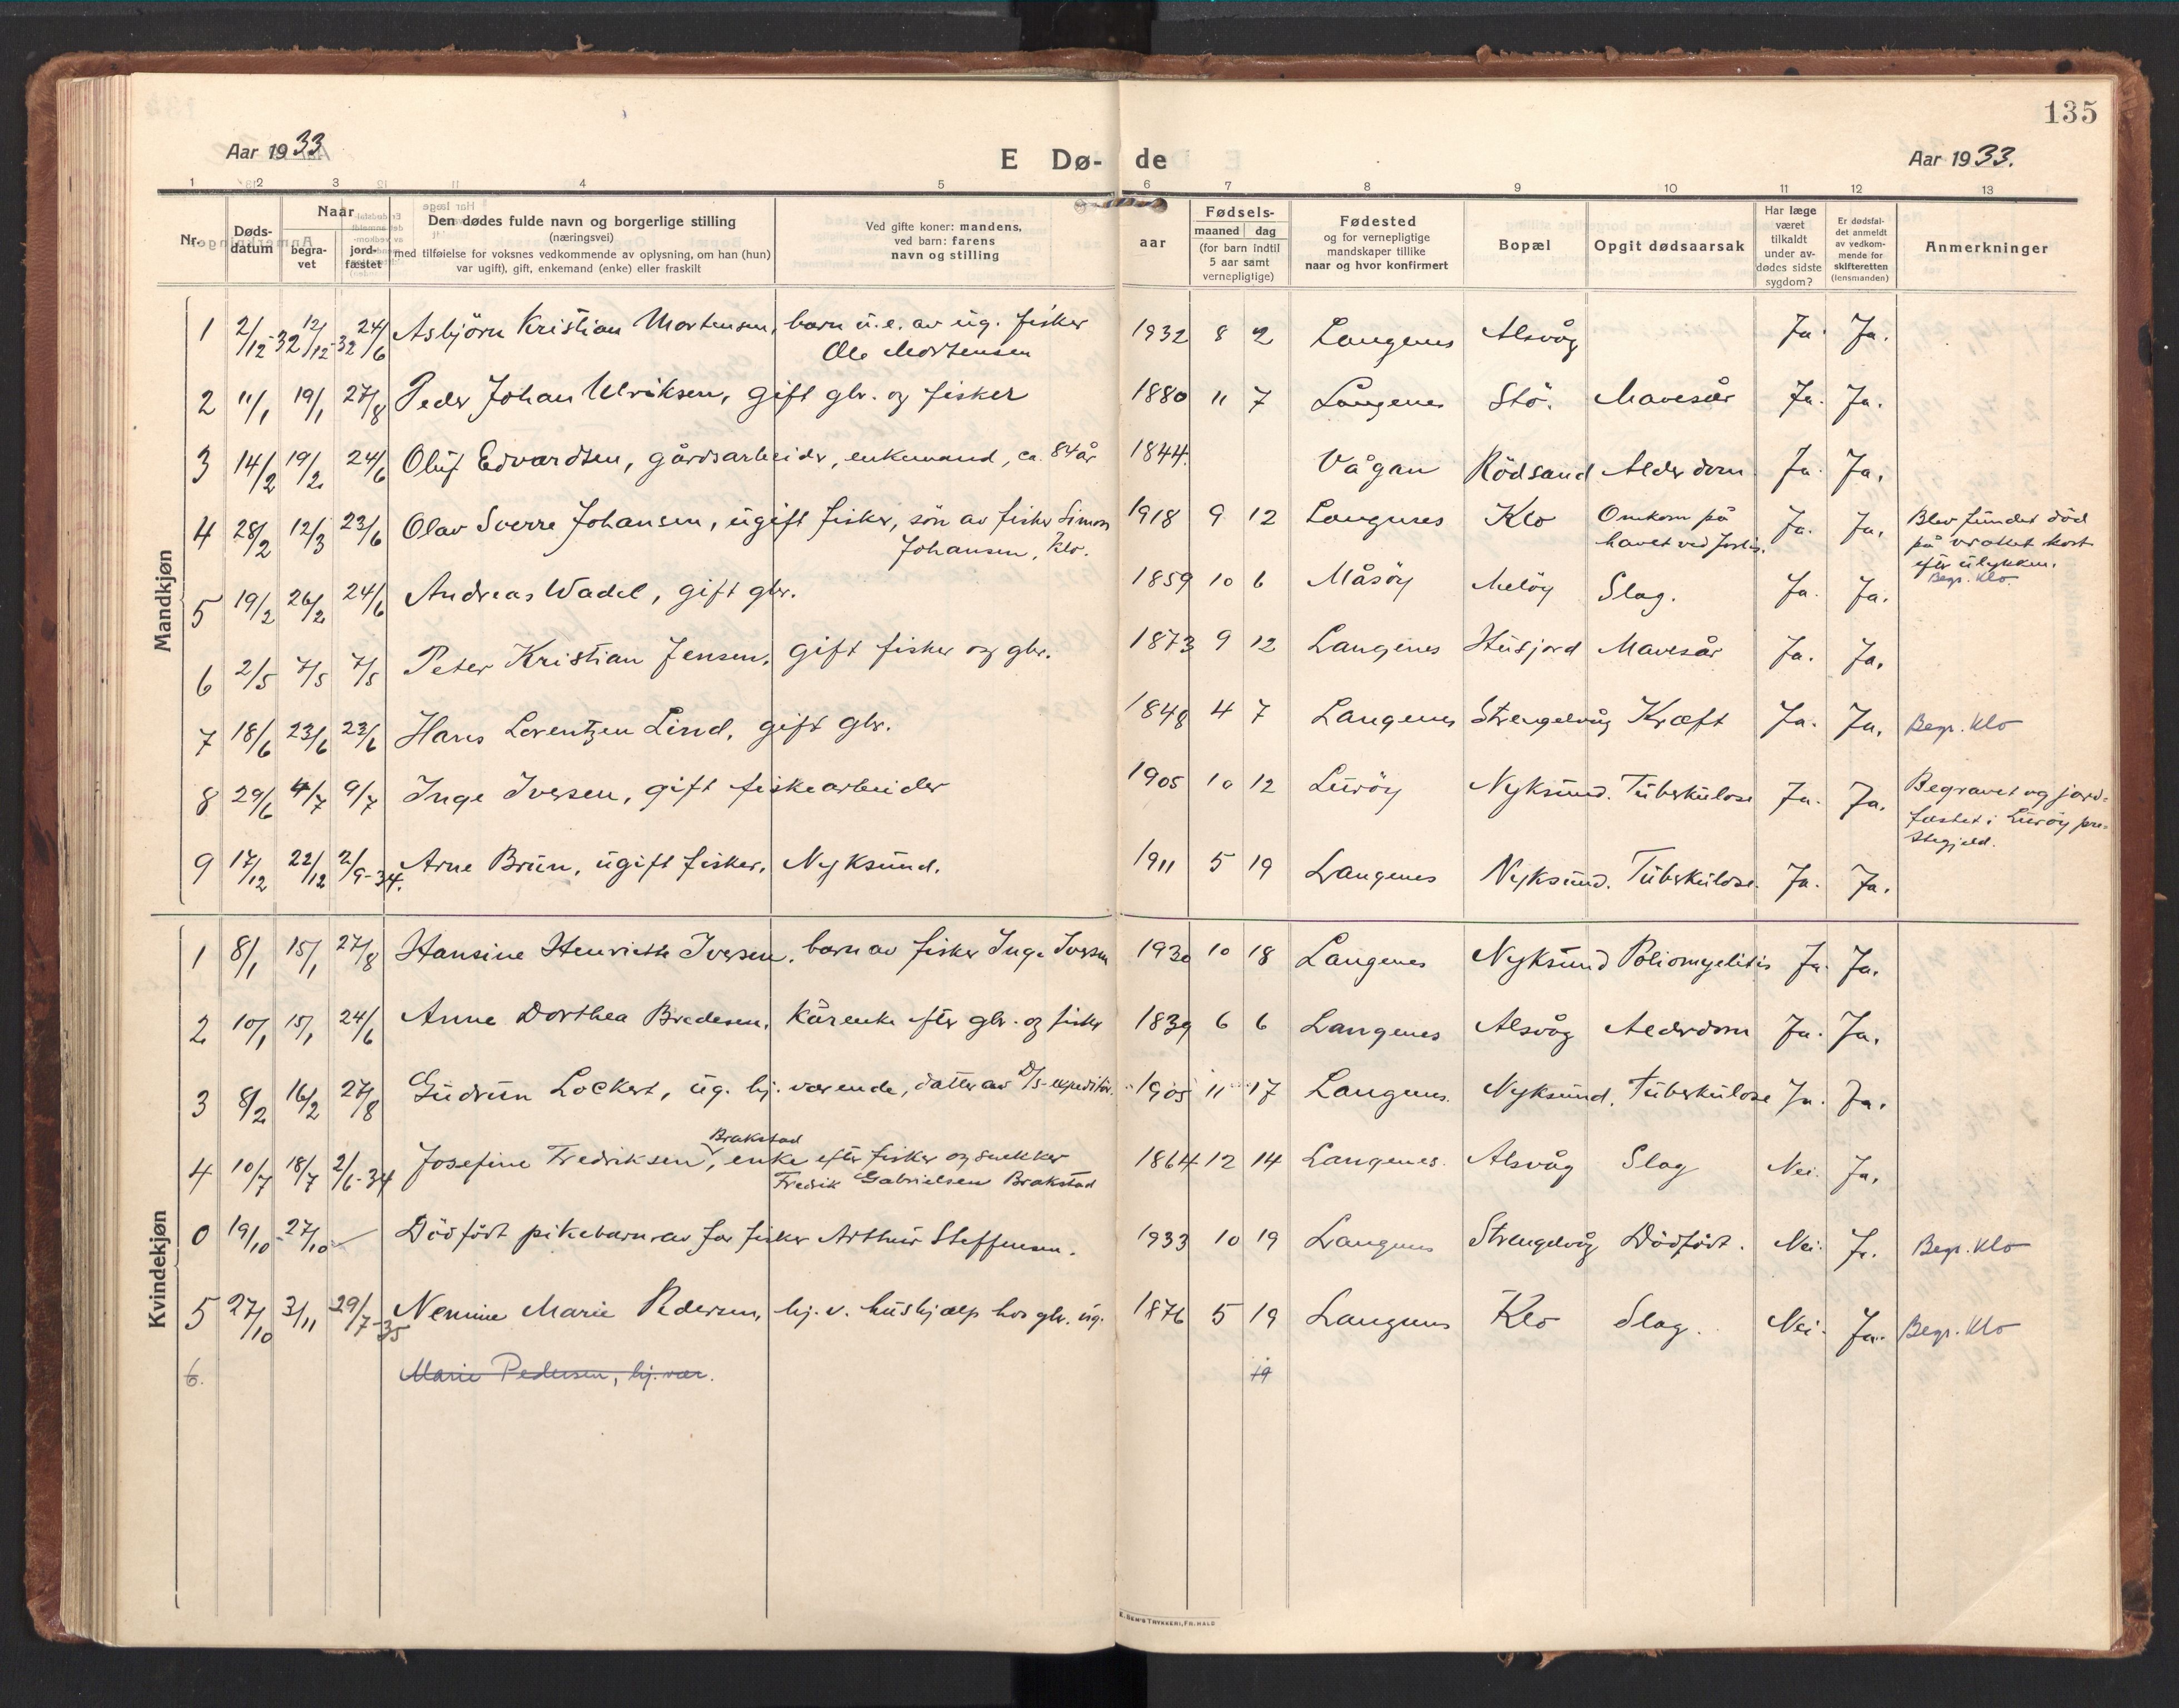 135
Aar 1933
E Dø- de
Aar 1933.
1 2 3 4 5 6 7 8 9 10 11 12 13
Nr.
Døds-
datum
Naar
begra-
vet
jord-
fæstet
Den dødes fulde navn og borgerlige stilling
(næringsvei)
med tilføielse for voksnes vedkommende av oplysning, om han (hun)
var ugift), gift, enkemand (enke) eller fraskilt
Ved gifte koner: mandens,
ved barn: farens
navn og stilling
aar
Fødsels-
maaned dag
(for barn indtil
5 aar samt
vernepligtige)
Fødested
og for vernepligtige
mandskaper tillike
naar og hvor konfirmert
Bopæl
Opgit dødsaarsak
Har læge
været
tilkaldt
under av-
dødes sidste
sygdom?
Er dødsfal-
det anmeldt
av vedkom-
mende for
skifteretten
(lensmanden)
Anmerkninger
Mandkjøn
1 2/12-32 12/12-32 24/6 Asbjörn Kristian Mortensen, barn u.e. av ug. fisker 1932 8 2 Langenes Alsvåg Ja. Ja.
Ole Mortensen
2 11/1 19/1 27/8 Peder Johan Ulriksen, gift gbr. og fisker 1880 11 7 Langenes Stö. Mavesår Ja. Ja.
3 14/2 19/2 24/6 Oluf Edvardsen, gårdsarbeider, enkemand, ca. 84 år 1844. Vågan Rödsand Alderdom Ja. Ja.
4 28/2 12/3 23/6 Olav Sverre Johansen, ugift fisker, sön av fisker Simon 1918 9 12 Langenes Klo Omkom på Ja. Ja. Blev fundet död
Johansen, Klo. havet ved forlis. på vraket kort
efter ulykken.
Begr. Klo.
5 19/2 26/2 24/6 Andreas Wadel, gift gbr. 1859 10 6 Måsöy Melöy Slag. Ja. Ja.
6 2/5 7/5 7/5 Peter Kristian Jensen, gift fisker og gbr. 1873 9 12 Langenes Husjord Mavesår Ja. Ja.
7 18/6 23/6 23/6 Hans Lorentzen Lind, gift gbr. 1848 4 7 Langenes Strengelvåg Kræft Ja. Ja. Begr. Klo
8 29/6 4/7 9/7 Inge Iversen, gift fiskearbeider 1905 10 12 Luröy Nyksund. Tuberkulose Ja. Ja. Begravet og jord-
fæstet i Luröy pre-
stegjeld.
9 17/12 22/12 2/9-34. Arne Brun, ugift fisker, Nyksund. 1911 5 19 Langenes Nyksund. Tuberkulose. Ja. Ja.
Kvindekjøn
1 8/1 15/1 27/8 Hansine Henriette Iversen, barn av fisker Inge Iversen 1930 10 18 Langenes Nyksund Poliomyelitis Ja. Ja.
2 10/1 15/1 24/6 Anne Dorthea Bredesen, kårenke efter gbr. og fisker 1839 6 6 Langenes Alsvåg Alderdom Ja. Ja.
3 8/2 16/2 27/8 Gudrun Lockert, ug. hj. værende, datter av D/S-expeditör. 1905 11 17 Langenes. Nyksund. Tuberkulose Ja. Ja.
Brakstad
4 10/7 18/7 2/6-34 Josefine Fredriksen, enke efter fisker og snekker 1864 12 14 Langenes. Alsvåg Slag Nei. Ja.
Fredrik Gabrielsen Brakstad
0 19/10 27/10 Dödfödt pikebarn av far fisker Arthur Steffensen. 1933 10 19 Langenes Strengelvåg Dödfödt. Nei. Ja. Begr. Klo
5 27/10 3/11 29/7-35 Nemine Marie Pedersen, hj. v. hushjælp hos gbr. ug. 1876 5 19 Langenes Klo Slag. Nei. Ja. Begr. Klo
6. Marie Pedersen, hj. vær. 19
E. SEM'S TRYKKERI, FR.HALD